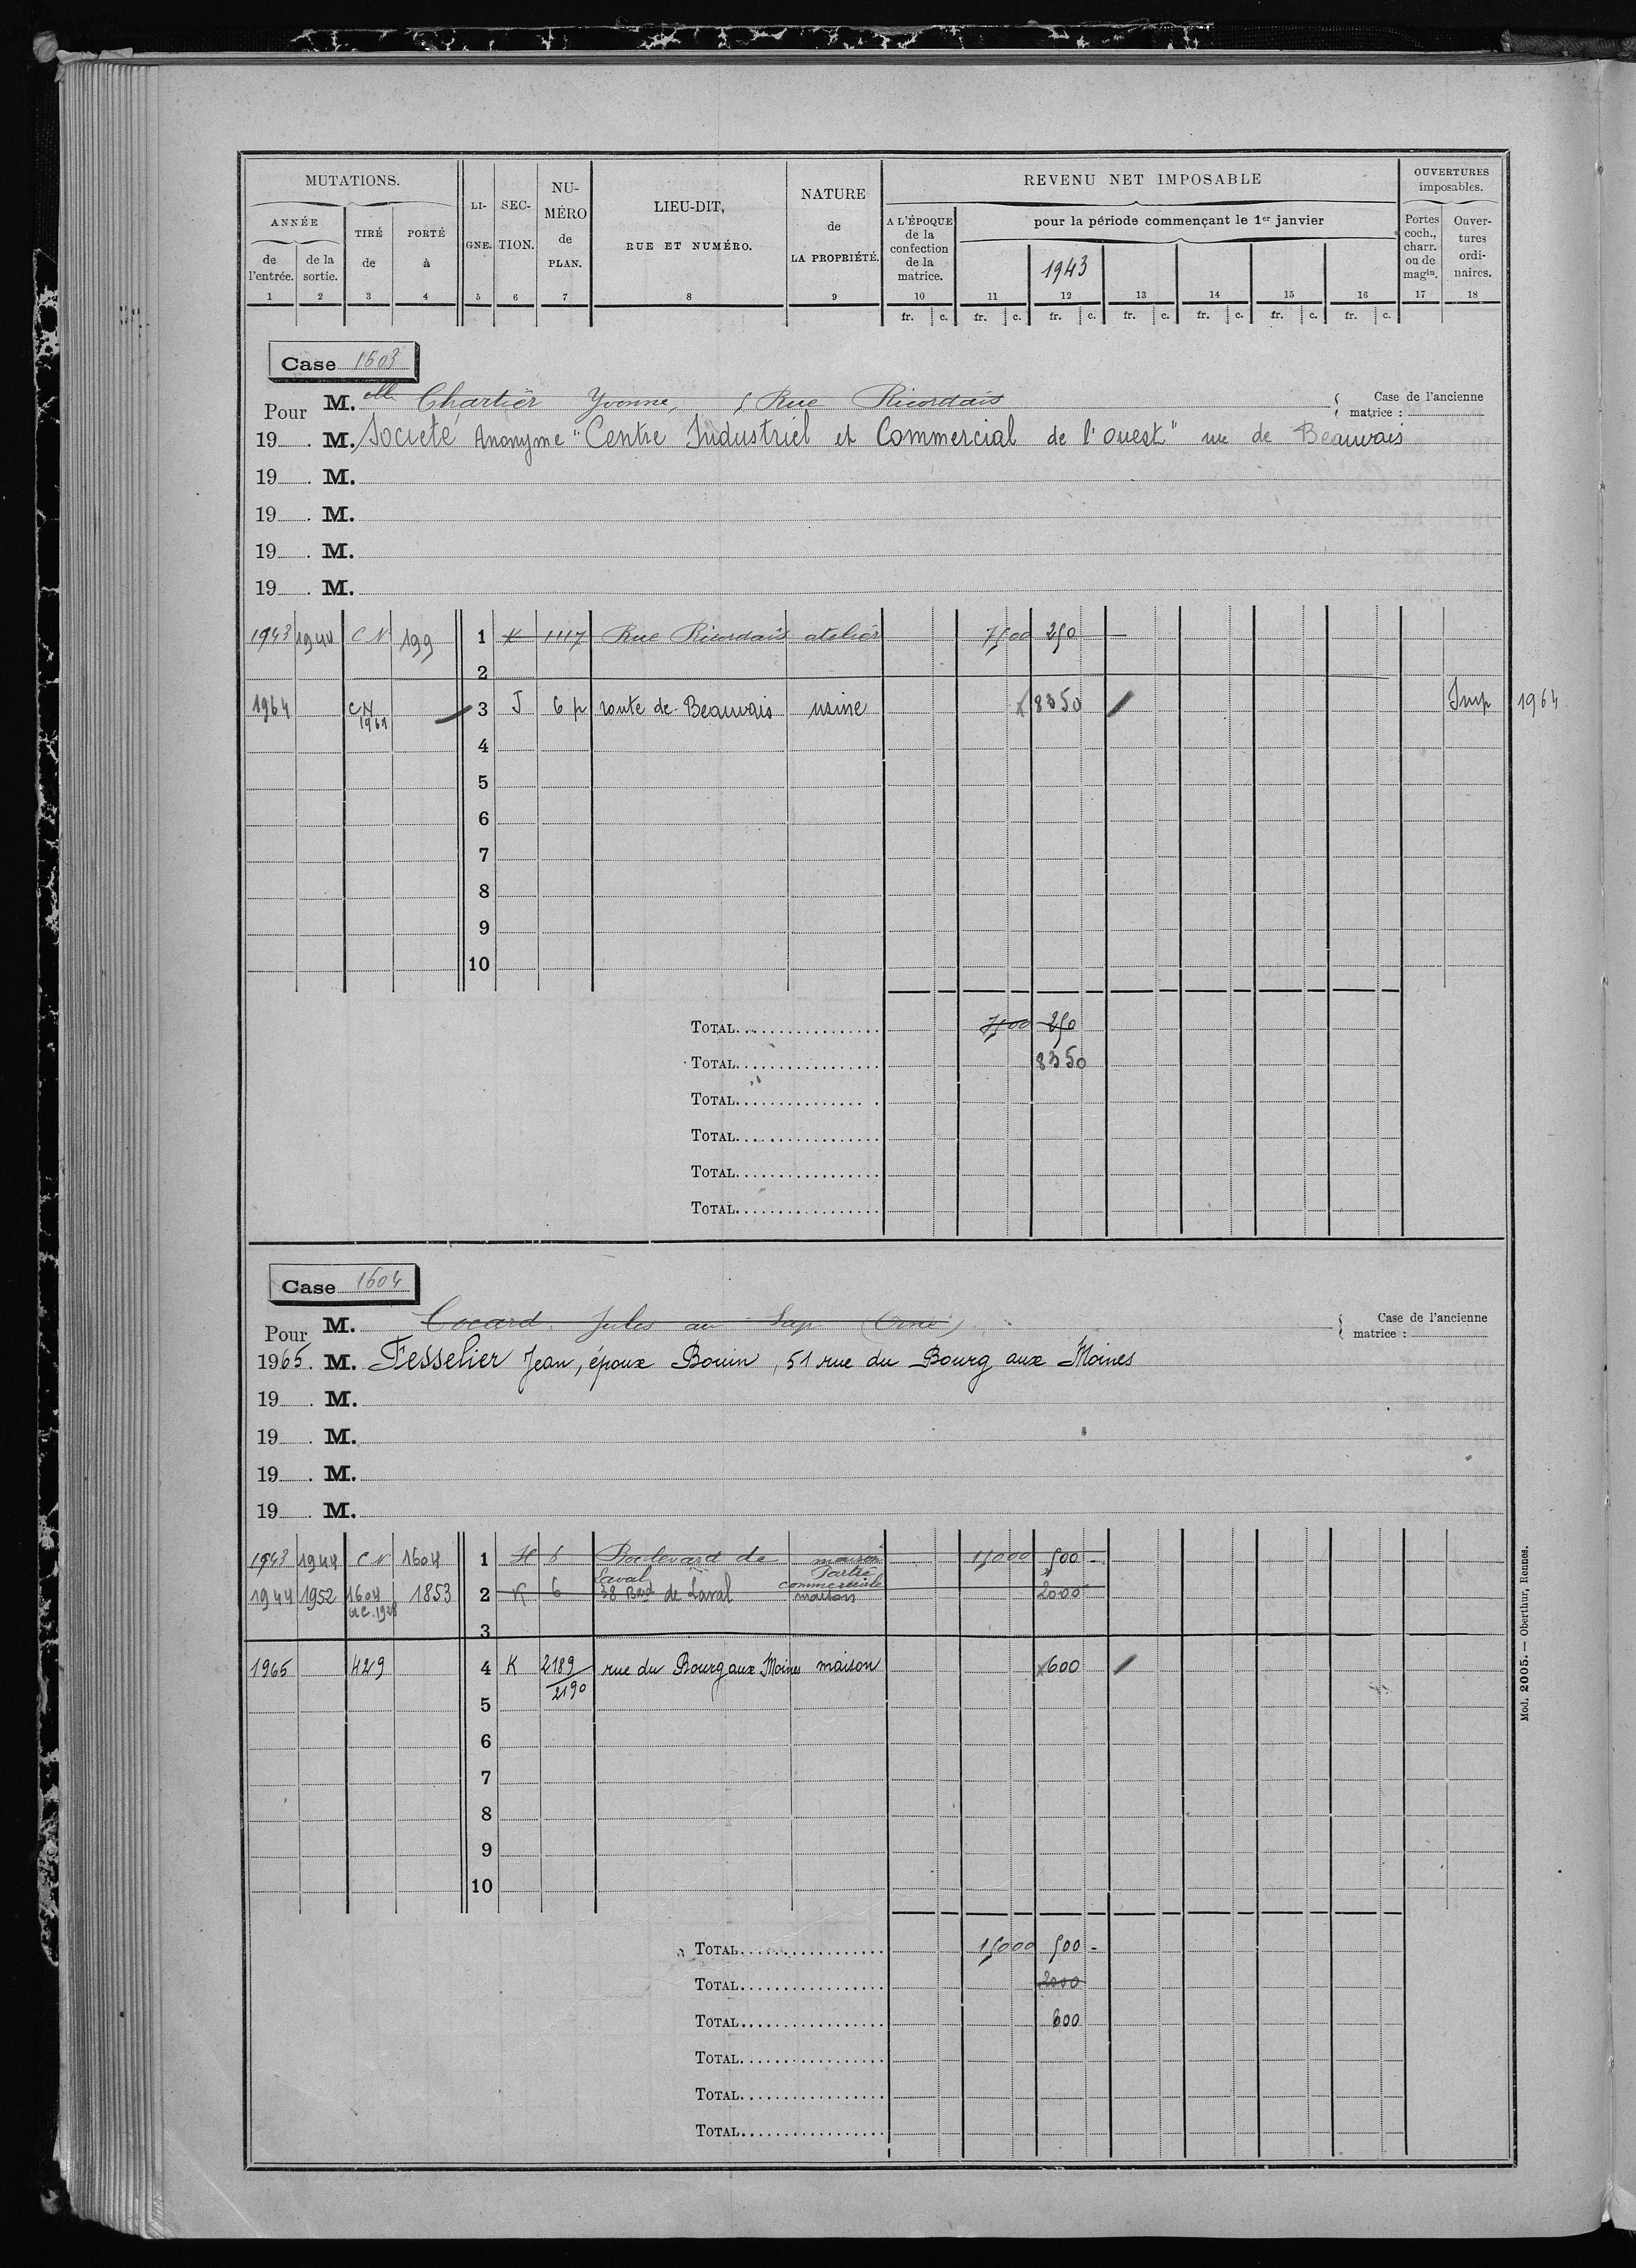 MUTATIONS. LI- SEC- NU- LIEU-DIT, NATURE REVENU NET IMPOSABLE OUVERTURES
GNE. TION. MÉRO RUE ET NUMÉRO. de imposables.
ANNÉE TIRÉ PORTÉ de LA PROPRIÉTÉ. A L'ÉPOQUE pour la période commençant le 1er janvier Portes Ouver-
de de la de à PLAN. de la coch., tures
l'entrée. sortie. confection charr. ordi-
de la 1943 ou de naires.
matrice. magin.
1 2 3 4 5 6 7 8 9 10 11 12 13 14 15 16 17 18
fr. c. fr. c. fr. c. fr. c. fr. c. fr. c. fr. c.
Case 1603
Pour M. elle Chartier Yvonne, 5 Rue Ricordais Case de l'ancienne
matrice :
19 . M. Société Anonyme "Centre Industriel et Commercial de l'ouest" rue de Beauvais
19 . M.
19 . M.
19 . M.
19 . M.
1943 1944 CN 199 1 K 1117 Rue Ricordais atelier 7500 250 —
2
1964 CN 1961 3 J 6 p route de Beauvais usine x 8350 Imp 1964
4
5
6
7
8
9
10
TOTAL 7500 250
TOTAL 8350
TOTAL
TOTAL
TOTAL
TOTAL
Case 1604
Pour M. Cocard Jules au Sap (Orne) Case de l'ancienne
matrice :
1965. M. Fesselier Jean, époux Bouin, 51 rue du Bourg aux Moines
19 . M.
19 . M.
19 . M.
19 . M.
1943 1944 CN 1604 1 H 6 Boulevard de Laval maison 15000 500 -
1944 1952 1604 1853 2 K 6 38 Bard de Laval Partie commerciale maison x 2000
3
1965 429 4 K 2189/2190 rue du Bourg aux Moines maison x 600
5
6
7
8
9
10
TOTAL 15000 500 -
TOTAL 2000
TOTAL 600
TOTAL
TOTAL
TOTAL
Mod. 2005. — Oberthur, Rennes.